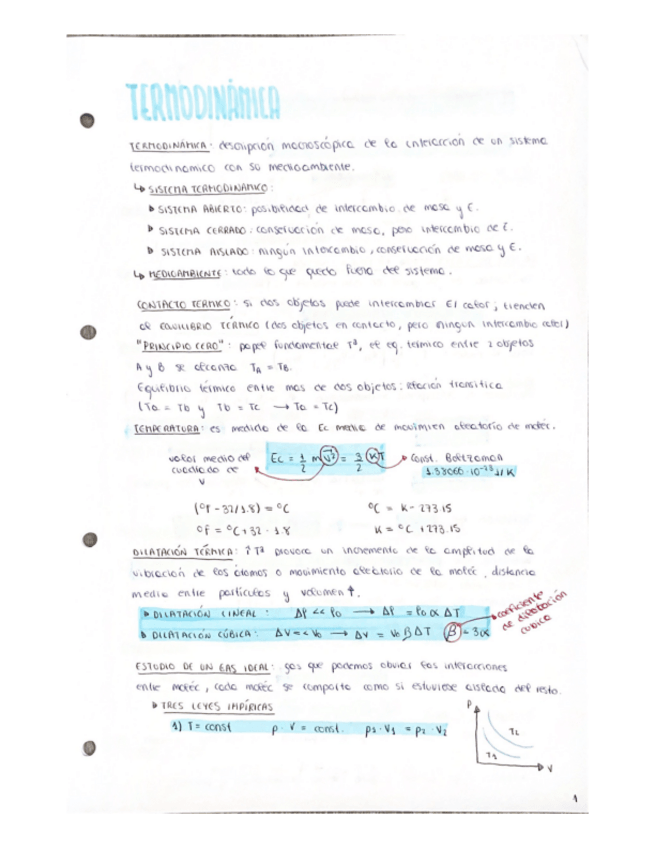 TERMODINÁMICA
TERMODINÁMICA: descripción macroscópica de la interacción de un sistema
termodinamico con su medioambiente.
↳ SISTEMA TERMODINÁMICO:
▸ SISTEMA ABIERTO: posibilidad de intercambio de masa y E.
▸ SISTEMA CERRADO: conservación de masa, pero intercambio de E.
▸ SISTEMA AISLADO: ningún intercambio, conservación de masa y E.
↳ MEDIOAMBIENTE: todo lo que queda fuera del sistema.
CONTACTO TÉRMICO: si dos objetos puede intercambiar El calor; tienden
al EQUILIBRIO TÉRMICO (dos objetos en contacto, pero ningun intercambio calor)
"PRINCIPIO CERO": papel fundamental Tª, el eq. térmico entre 2 objetos
A y B se alcanza TA = TB.
Equilibrio térmico entre mas de dos objetos: relación transitiva
(Ta = Tb y Tb = Tc → Ta = Tc)
TEMPERATURA: es medida de la Ec media de movimien aleatorio de moléc.
valor medio del
cuadrado de
v
Ec = 1/2 m v² = 3/2 KT
Const. Boltzman
1.38066·10⁻²³ J/K
(ºF - 32/1.8) = ºC
ºC = K - 273.15
ºF = ºC + 32 · 1.8
K = ºC + 273.15
DILATACIÓN TÉRMICA: ↑Tª provoca un incremento de la amplitud de la
vibración de los átomos o movimiento aleatorio de la moléc, distancia
media entre partículas y volumen ↑.
▸ DILATACIÓN LINEAL: Δl << l₀ → Δl = l₀ α ΔT
coeficiente
de dilatación
cubica
▸ DILATACIÓN CÚBICA: ΔV << V₀ → ΔV = V₀ β ΔT β = 3α
ESTUDIO DE UN GAS IDEAL: gas que podemos obviar las interacciones
entre moléc, cada moléc se comporta como si estuviese aislada del resto.
▸ TRES LEYES IMPÍRICAS
1) T = const p · V = const. p₁ · V₁ = p₂ · V₂
P
T₂
T₁
V
1